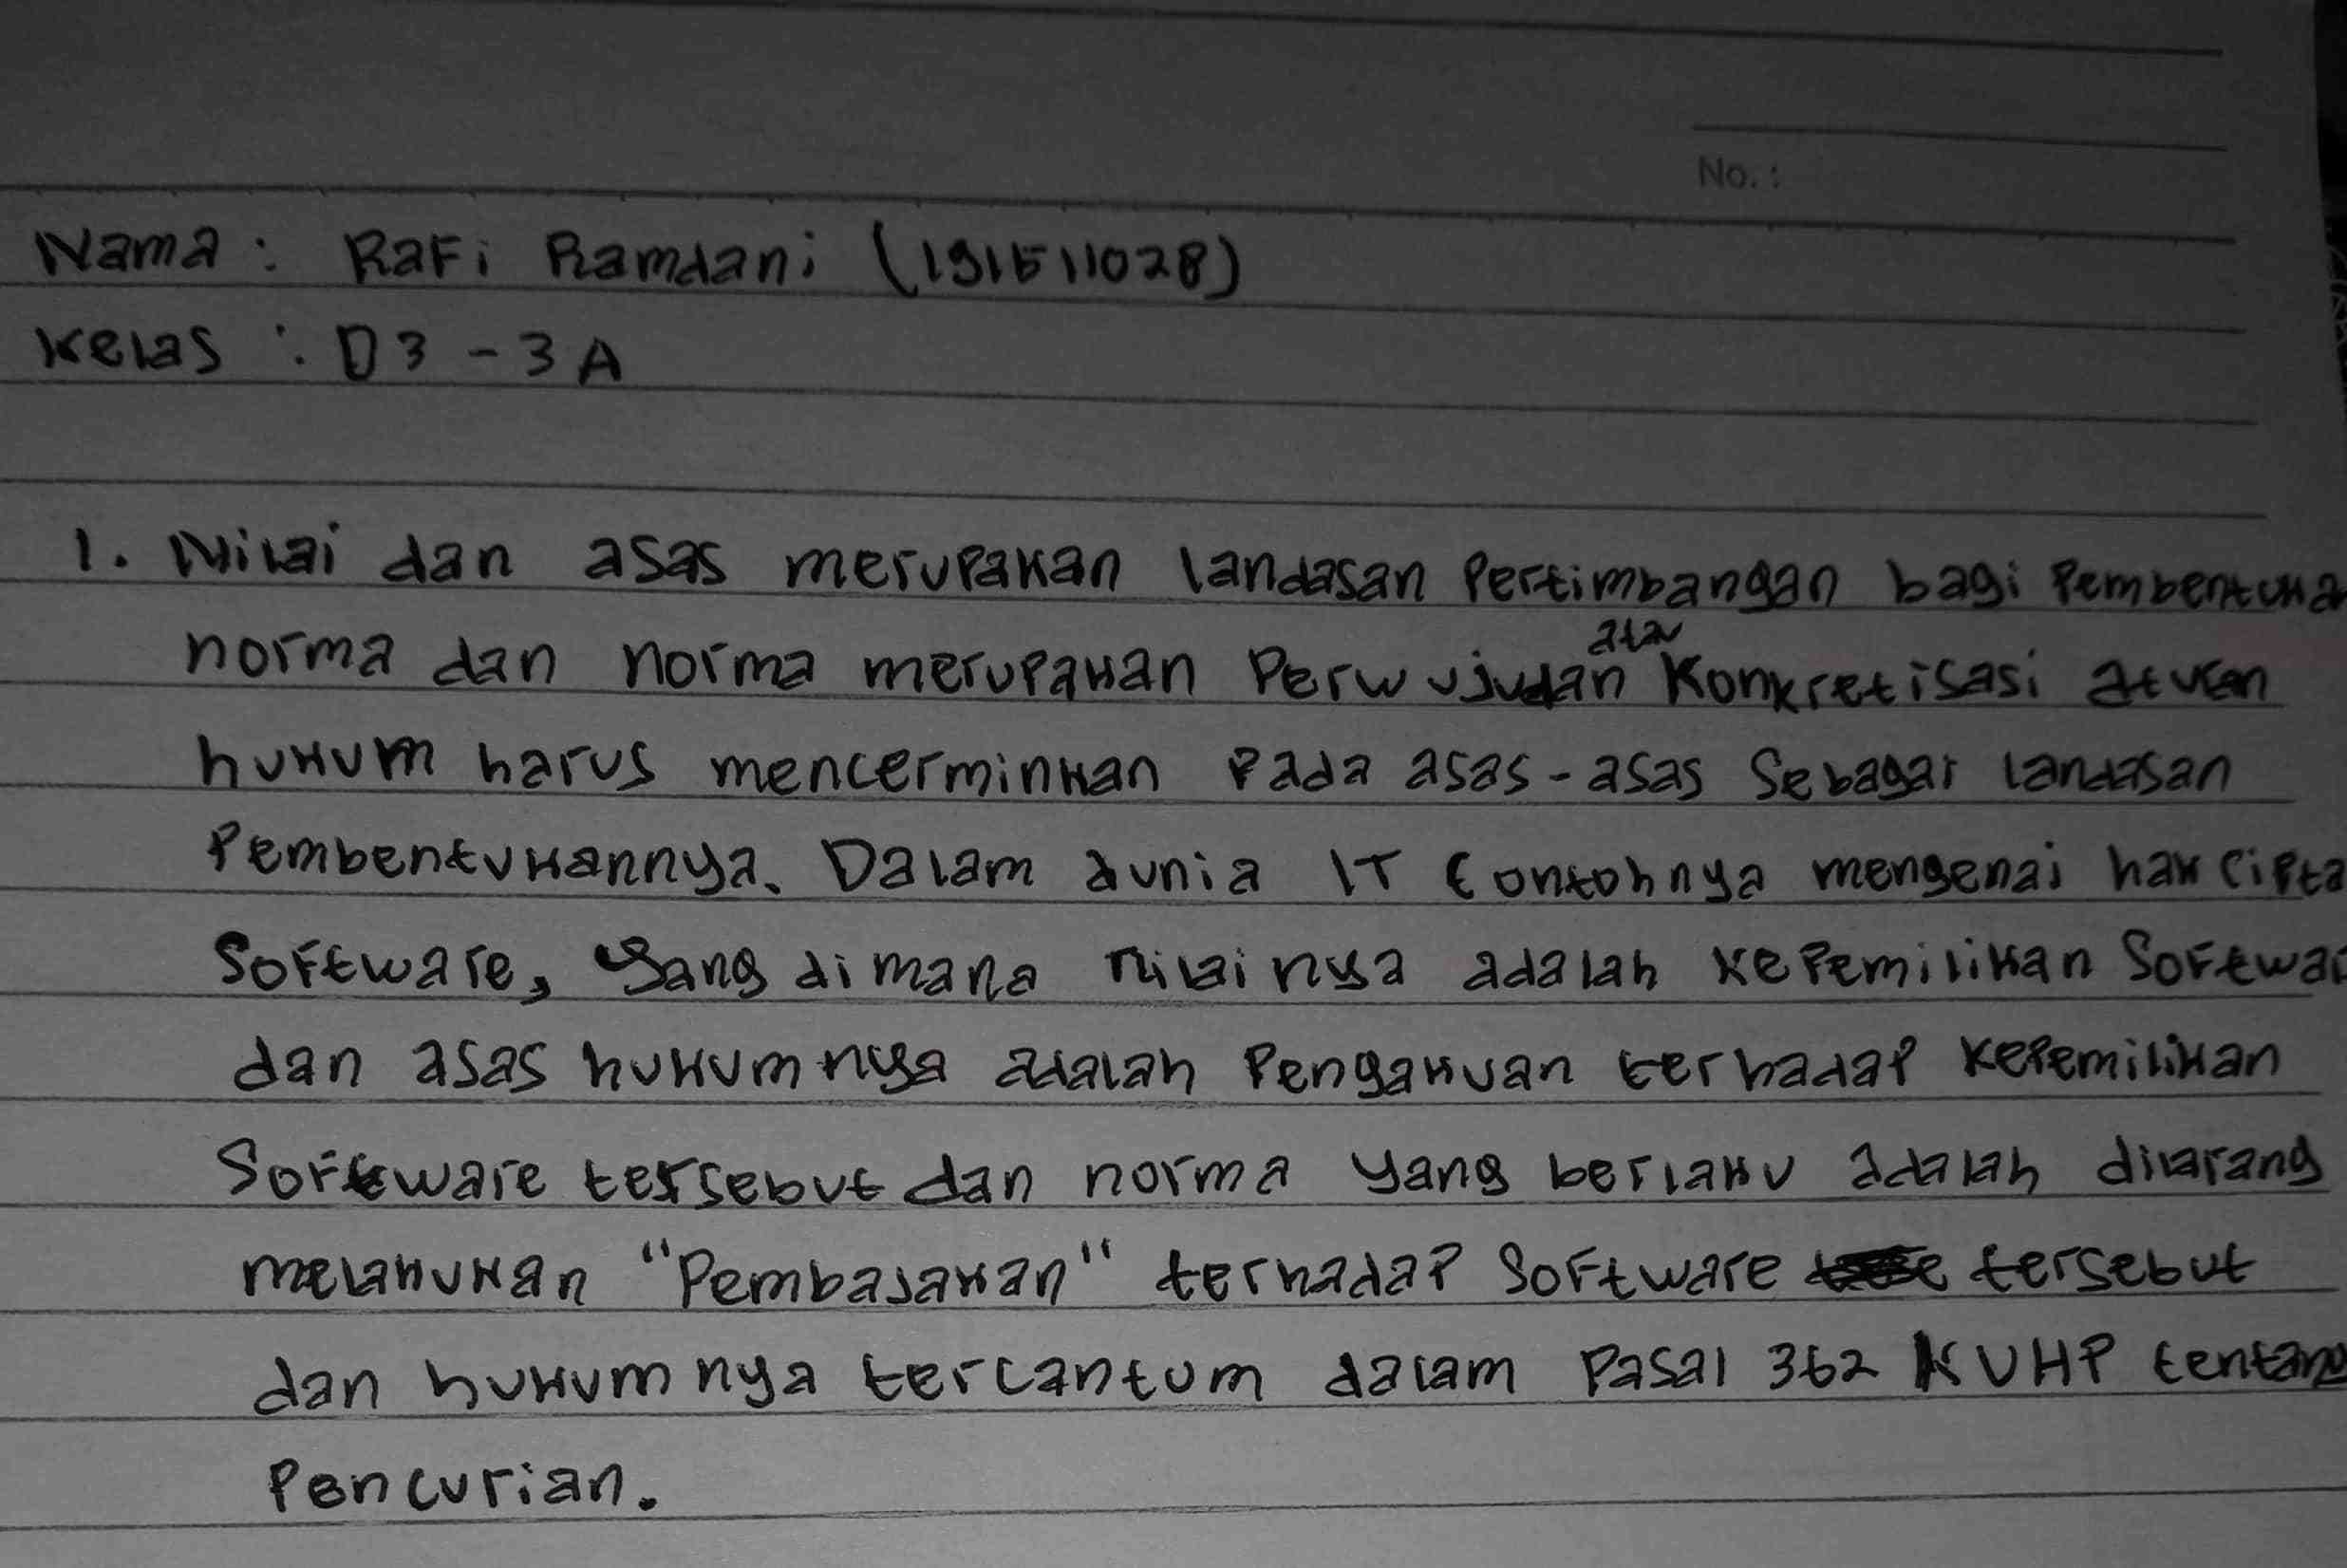 No. :
Nama : Rafi Ramdani (191511028)
Kelas : D3 - 3A
1. Nilai dan asas merupakan landasan Pertimbangan bagi Pembentuka
norma dan norma merupakan Perwujudan atau Konkretisasi aturan
hukum harus mencerminkan Pada asas-asas Sebagai landasan
Pembentukannya. Dalam dunia IT Contohnya mengenai hak Cipta
Software, Yang dimana nilainya adalah kepemilikan Softwar
dan asas hukumnya adalah Pengakuan terhadap kepemilikan
Software tersebut dan norma yang berlaku adalah dilarang
melakukan "Pembajakan" terhadap Software tersebut
dan hukumnya tercantum dalam Pasal 362 KUHP tentang
Pencurian.